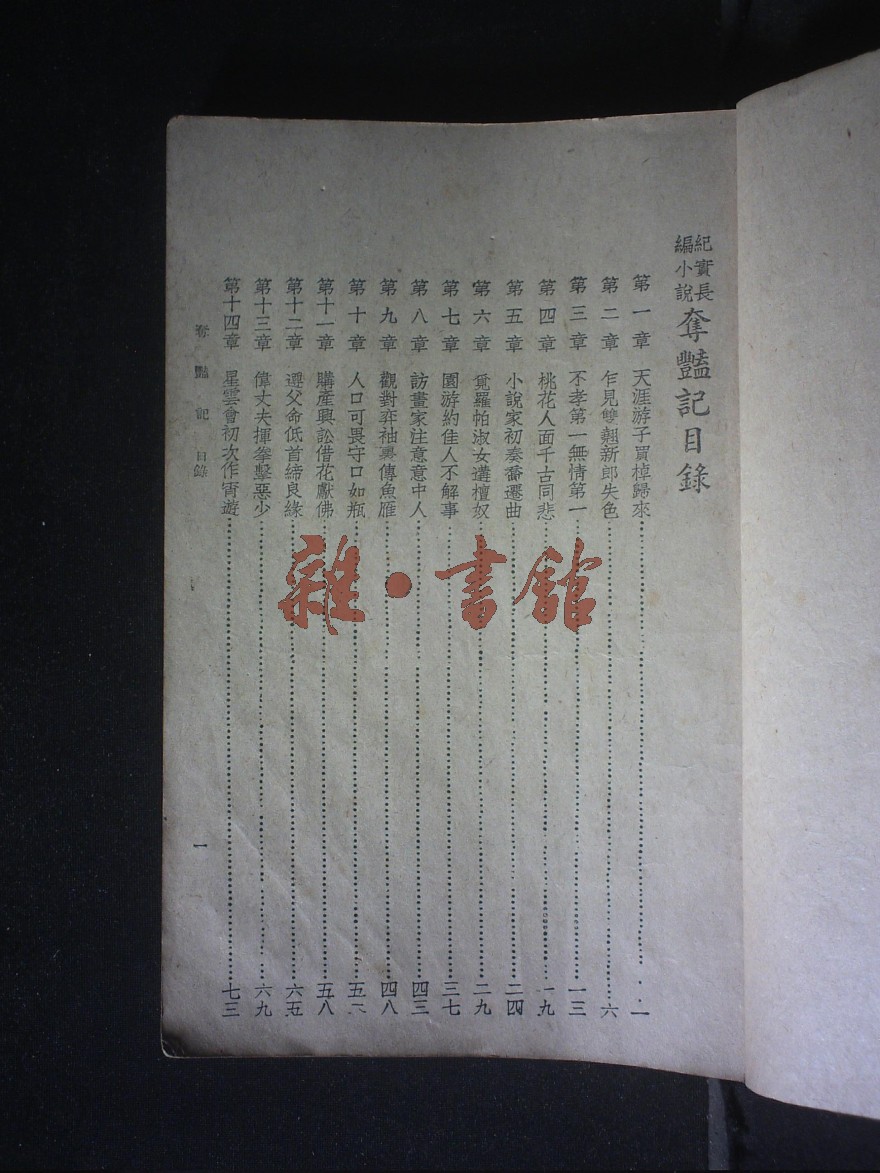 紀實長
編小說
奪豔記目錄
第一章 天涯游子買棹歸來 一
第二章 乍見雙翹新郎失色 六
第三章 不孝第一無情第一 一三
第四章 桃花人面千古同悲 一九
第五章 小說家初奏喬遷曲 二四
第六章 覓羅帕淑女遘檀奴 二九
第七章 園游約佳人不解事 三七
第八章 訪畫家注意意中人 四三
第九章 觀對弈袖裏傳魚雁 四八
第十章 人口可畏守口如瓶 五
第十一章 購產興訟借花獻佛 五八
第十二章 遵父命低首締良緣 六五
第十三章 偉丈夫揮拳擊惡少 六九
第十四章 星雲會初次作宵遊 七三
奪豔記 目錄
一
雜·書館